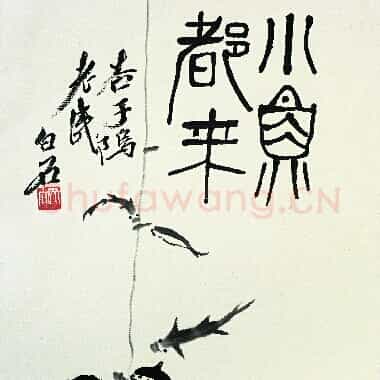 小魚
都来
杏子隖
老民
白石
shufawang.CN